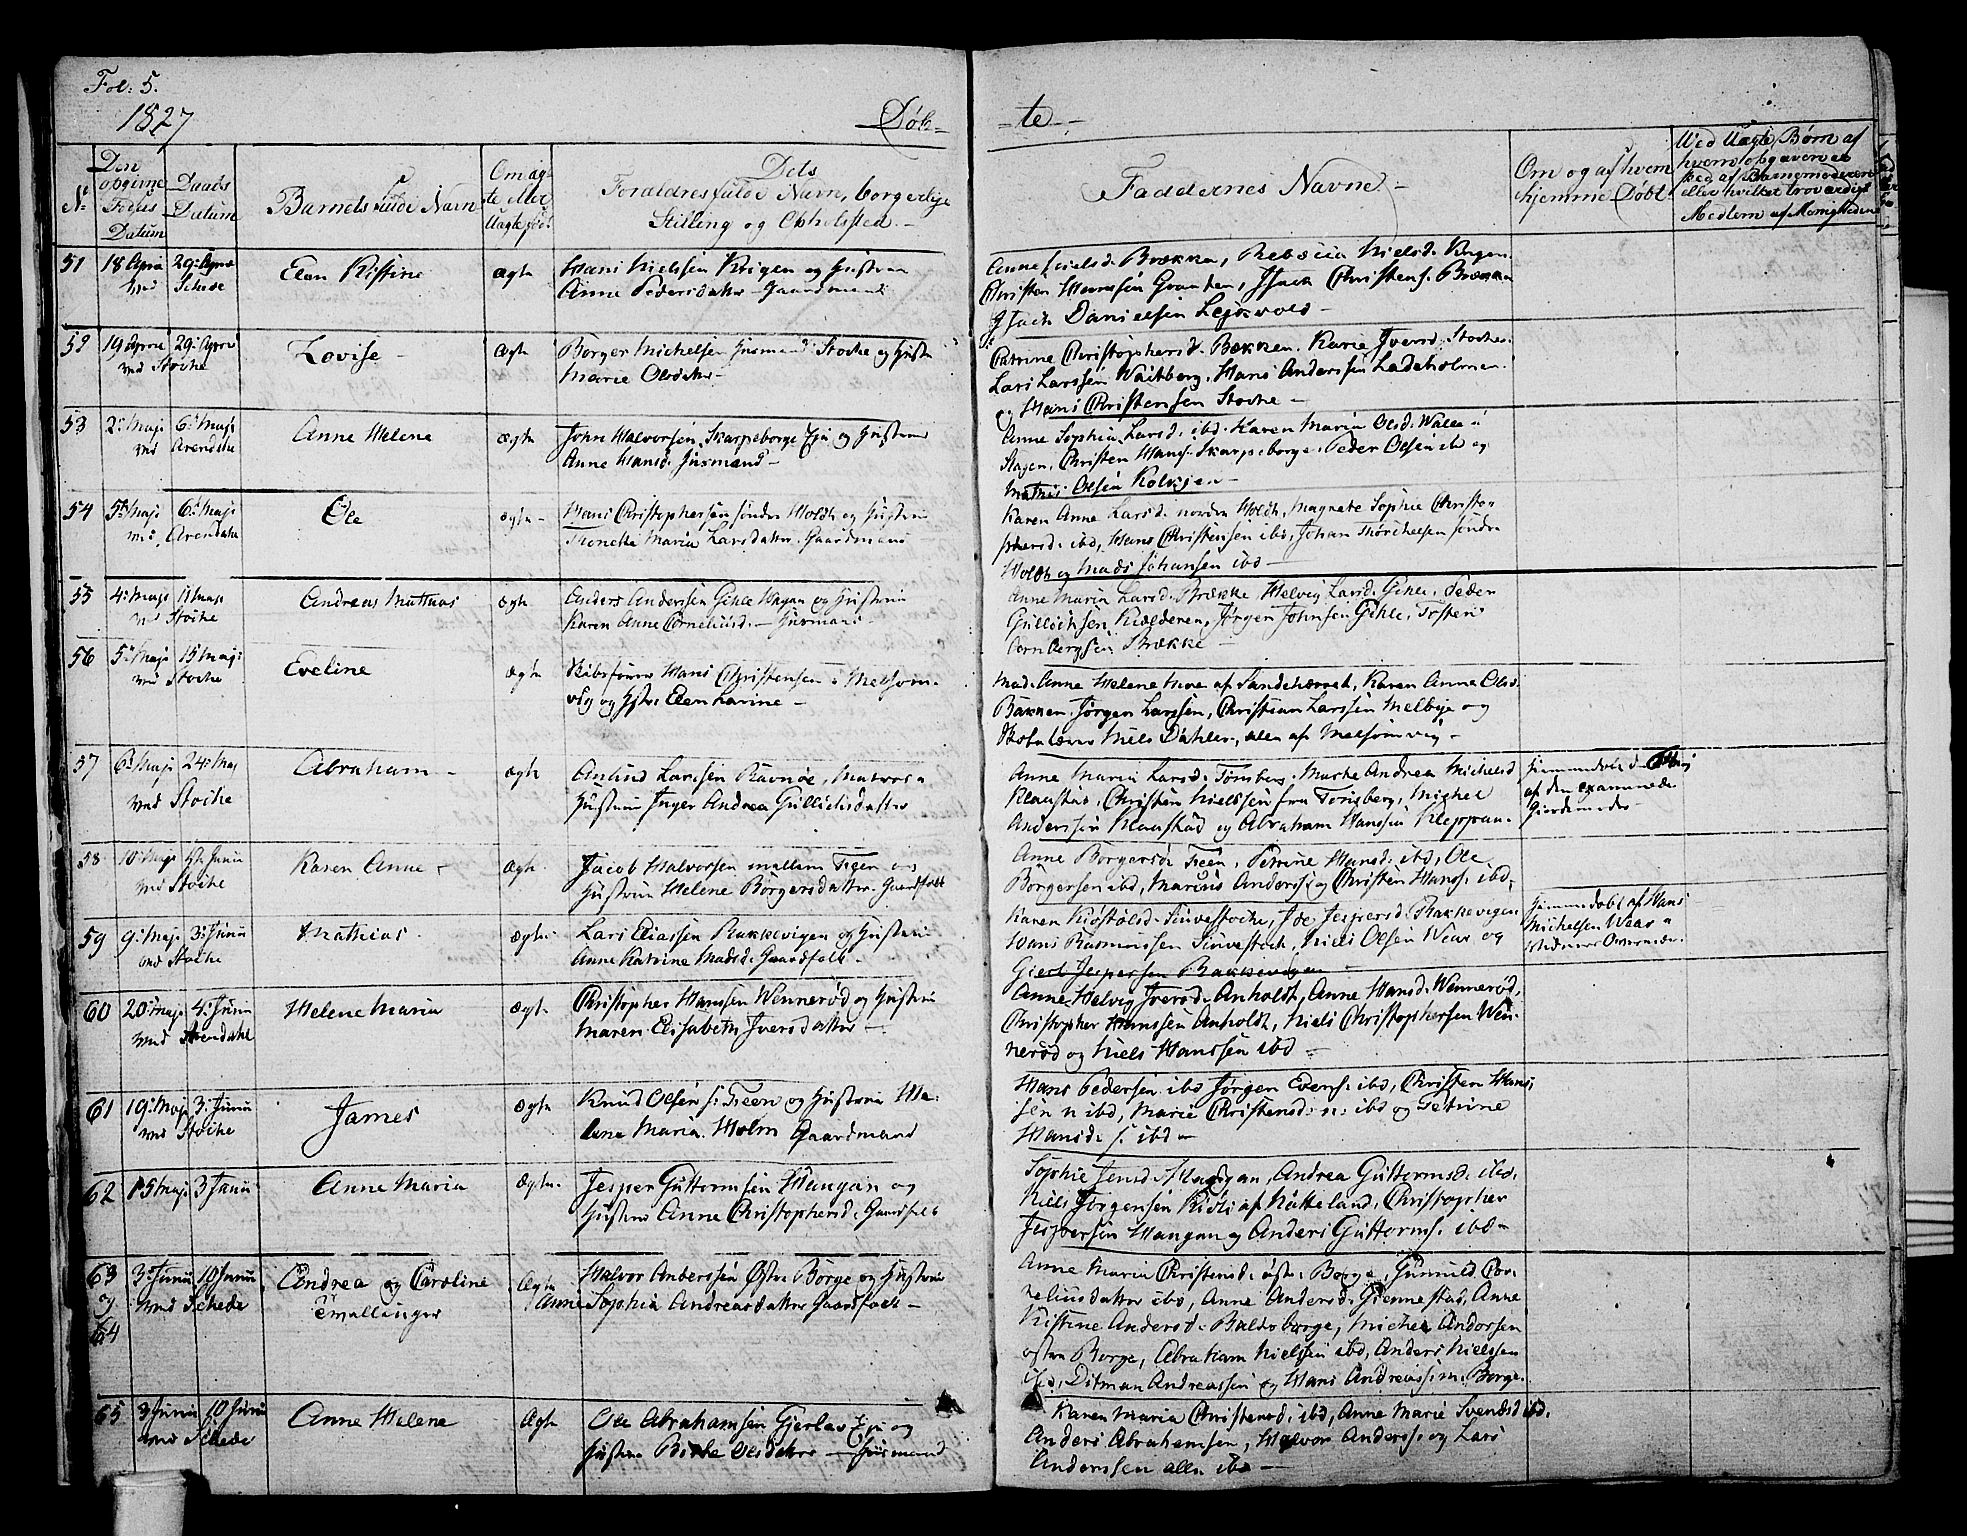 Fol: 5.
1827
Døb-
-te-
No
Den opgivne Fødsels Datum
Daabs Datum
Barnets fulde Navn
Om ægte eller Uægte fød.
Dets Forældres fulde Navn, borgerlige
Stilling og Opholdsted.-
Faddernes Navne-
Om og af hvem
hjemme Døbt
Ved Uægte Børn af
hvem opgaven er
skeed af Barnemoderen
eller hvilket troværdigt
Medlem af Menigheden
51 18 April 29. April Elen Kistine ægte Hans Nielssen Krigen og Hustrue
Anne Pedersdatter Gaardmand
Anne Nielsd. Brækken, Rebecca Nielsd.
Christen Hanssen Granden, Isach Christens. Brække
Isach Danielsen
52 19 April 29. April Lovise- ægte Borger Michelsen Huusmand Stocke og Hustr.
med Stocke Marie Olsdatter-
Catrine Christophersd. Bækken. Karie Iversd. Stocke.
Lars Larssen Waitberg, Hans Anderssen Ladeholmen.
og Hans Christensen Stocke-
53 2. Maji 6. Maji Anne Helene ægte John Halvorsen, Skarpeborge Eje og Hustrue
med Arendahl Anne Hansd. Huusmand-
Anne Sophia Larsd. ibd. Karen Maria Olsd.
Christen Hans. Skarpeborge, Peder Olsen ibd og
Mathis Olsen
54 5. Maji 6. Maji Ole ægte- Hans Christophersen søndre Holdt og Hustrue
Arendahl Maria Larsdatter Gaardmand
Karen Anne Larsd. nordre Holdt, Magnete Sophie Christo-
phersd. ibd, Hans Christensen ibd, Johan Thorchelsen søndre
Holdt og Mads Johansen ibd-
55 4. Maji 11 Maji Andreas Mathias ægte Anders Anderssen Gihle Hagan og Hustrue
Stocke Karen Anne Corneliusd.- Huusmand-
Anne Maria Larsd. Brække Helvig Larsd. Gihle. Peder
Gullichsen Kielderen, Jørgen Johnsen Gihle,
Brække-
56 5. Maji 15 Maji Eveline ægte Skibsfører Hans Christensen i Melsom-
med Stocke vig og Hstr. Elen Karine-
Mad. Anne Helene af Sandeherred, Karen Anne Olsd.
Bakken. Jørgen Larssen, Christian Larssen Melbye og
Niels Dahler, alle af Melsomvig-
57 6. Maji 24. Maj Abraham- ægte Amund Larssen Ravnøe, Matros og
med Stocke Hustrue Inger Andrea Gullichsdatter
Anne Maria Larsd. Tønsberg. Marte Andrea Michelsd
Klaastad, Christen Nielssen fra Tønsberg, Michel
Anderssen Klaastad og Abraham Hanssen Kleppan.
Hjemmedøbt d.
af den examinerede
Giordemoder-
58 10. Maji Junii Karen Anne- ægte Jacob Halvorssen mellem Freen og
med Stocke Hustrue Helene Børgersdatter. Gaardfolk
Anne Borgersd Freen, Petrine Hansd. ibd, Ole
Børgersen ibd, Marcus Anderss. og Christen Hans. ibd,
59 9. Maji 3. Junii Mathias. ægte Lars Eliassen Rakkevigen og Hustrue
med Stocke Anne Katrine Madsd. Gaardfolk-
Karen Kiøstolsd. Jespersd. Rakkevigen
Hans Rasmussen Niels Olsen Wear og
Giert Jespersen Rakkevigen
Hjemmedøbt af Hans
Michelsen Wear
60 20. Maji 4. Junii Helene Maria ægte Christopher Hanssen Wennerød og Hustrue
med Arendahl Maren Elisabeth Iversdatter-
Anne Helvig Iversd. Anholdt, Anne Hansd. Wennerød,
Christopher Hanssen Anholdt, Niels Christophersen Wen-
nerød og Niels Hanssen ibd-
61 19. Maji 3. Junii James ægte Knud Olsen s: Freen og Hustrue He-
med Stocke lene Maria Holm Gaardmand
Hans Pedersen ibd Jørgen Evens. ibd, Christen Hans
sen n ibd, Marie Christensd: n: ibd og Petrine
Hansd. s. ibd-
62 15 Maji 3 Junii Anne Maria ægte. Jesper Guttormsen Haugan og
Hustrue Anne Christophersd. Gaardfolk
Sophie Jensd. Haugan, Andrea Guttormsd. ibd.
Niels Jørgensen Kiølî af Natteland, Christopher
Jespersen Haugan og Anders Guttorms. ibd-
63 og 64 3. Junii 10 Junii Andrea og Caroline ægte Halvor Anderssen Øst. Borge og Hustrue
med Schede Tvillinger Anne Sophia Andreasdatter Gaardfolk-
Anne Maria Christensd. øst. Borge, Gunnild Cor-
neliusdatter ibd, Anne Andersd. Giennestad, Anne
Kistine Andersd. Michel Andersen
østre Borge, Abraham Nielssen ibd, Anders Nielssen
ibd, Ditman Andreassen og Hans Andreassen. Borge.
65 3 Junii 10 Junii Anne Helene Ægte Ole Abrahamsen Gjerlov Eje og
med Schede Hustrue Olsdatter- Huusmand
Karen Maria Christensd. ibd, Anne Marie Svendsd ibd.
Anders Abrahamsen, Halvor Anderss. og Lars
Anderssen alle ibd-